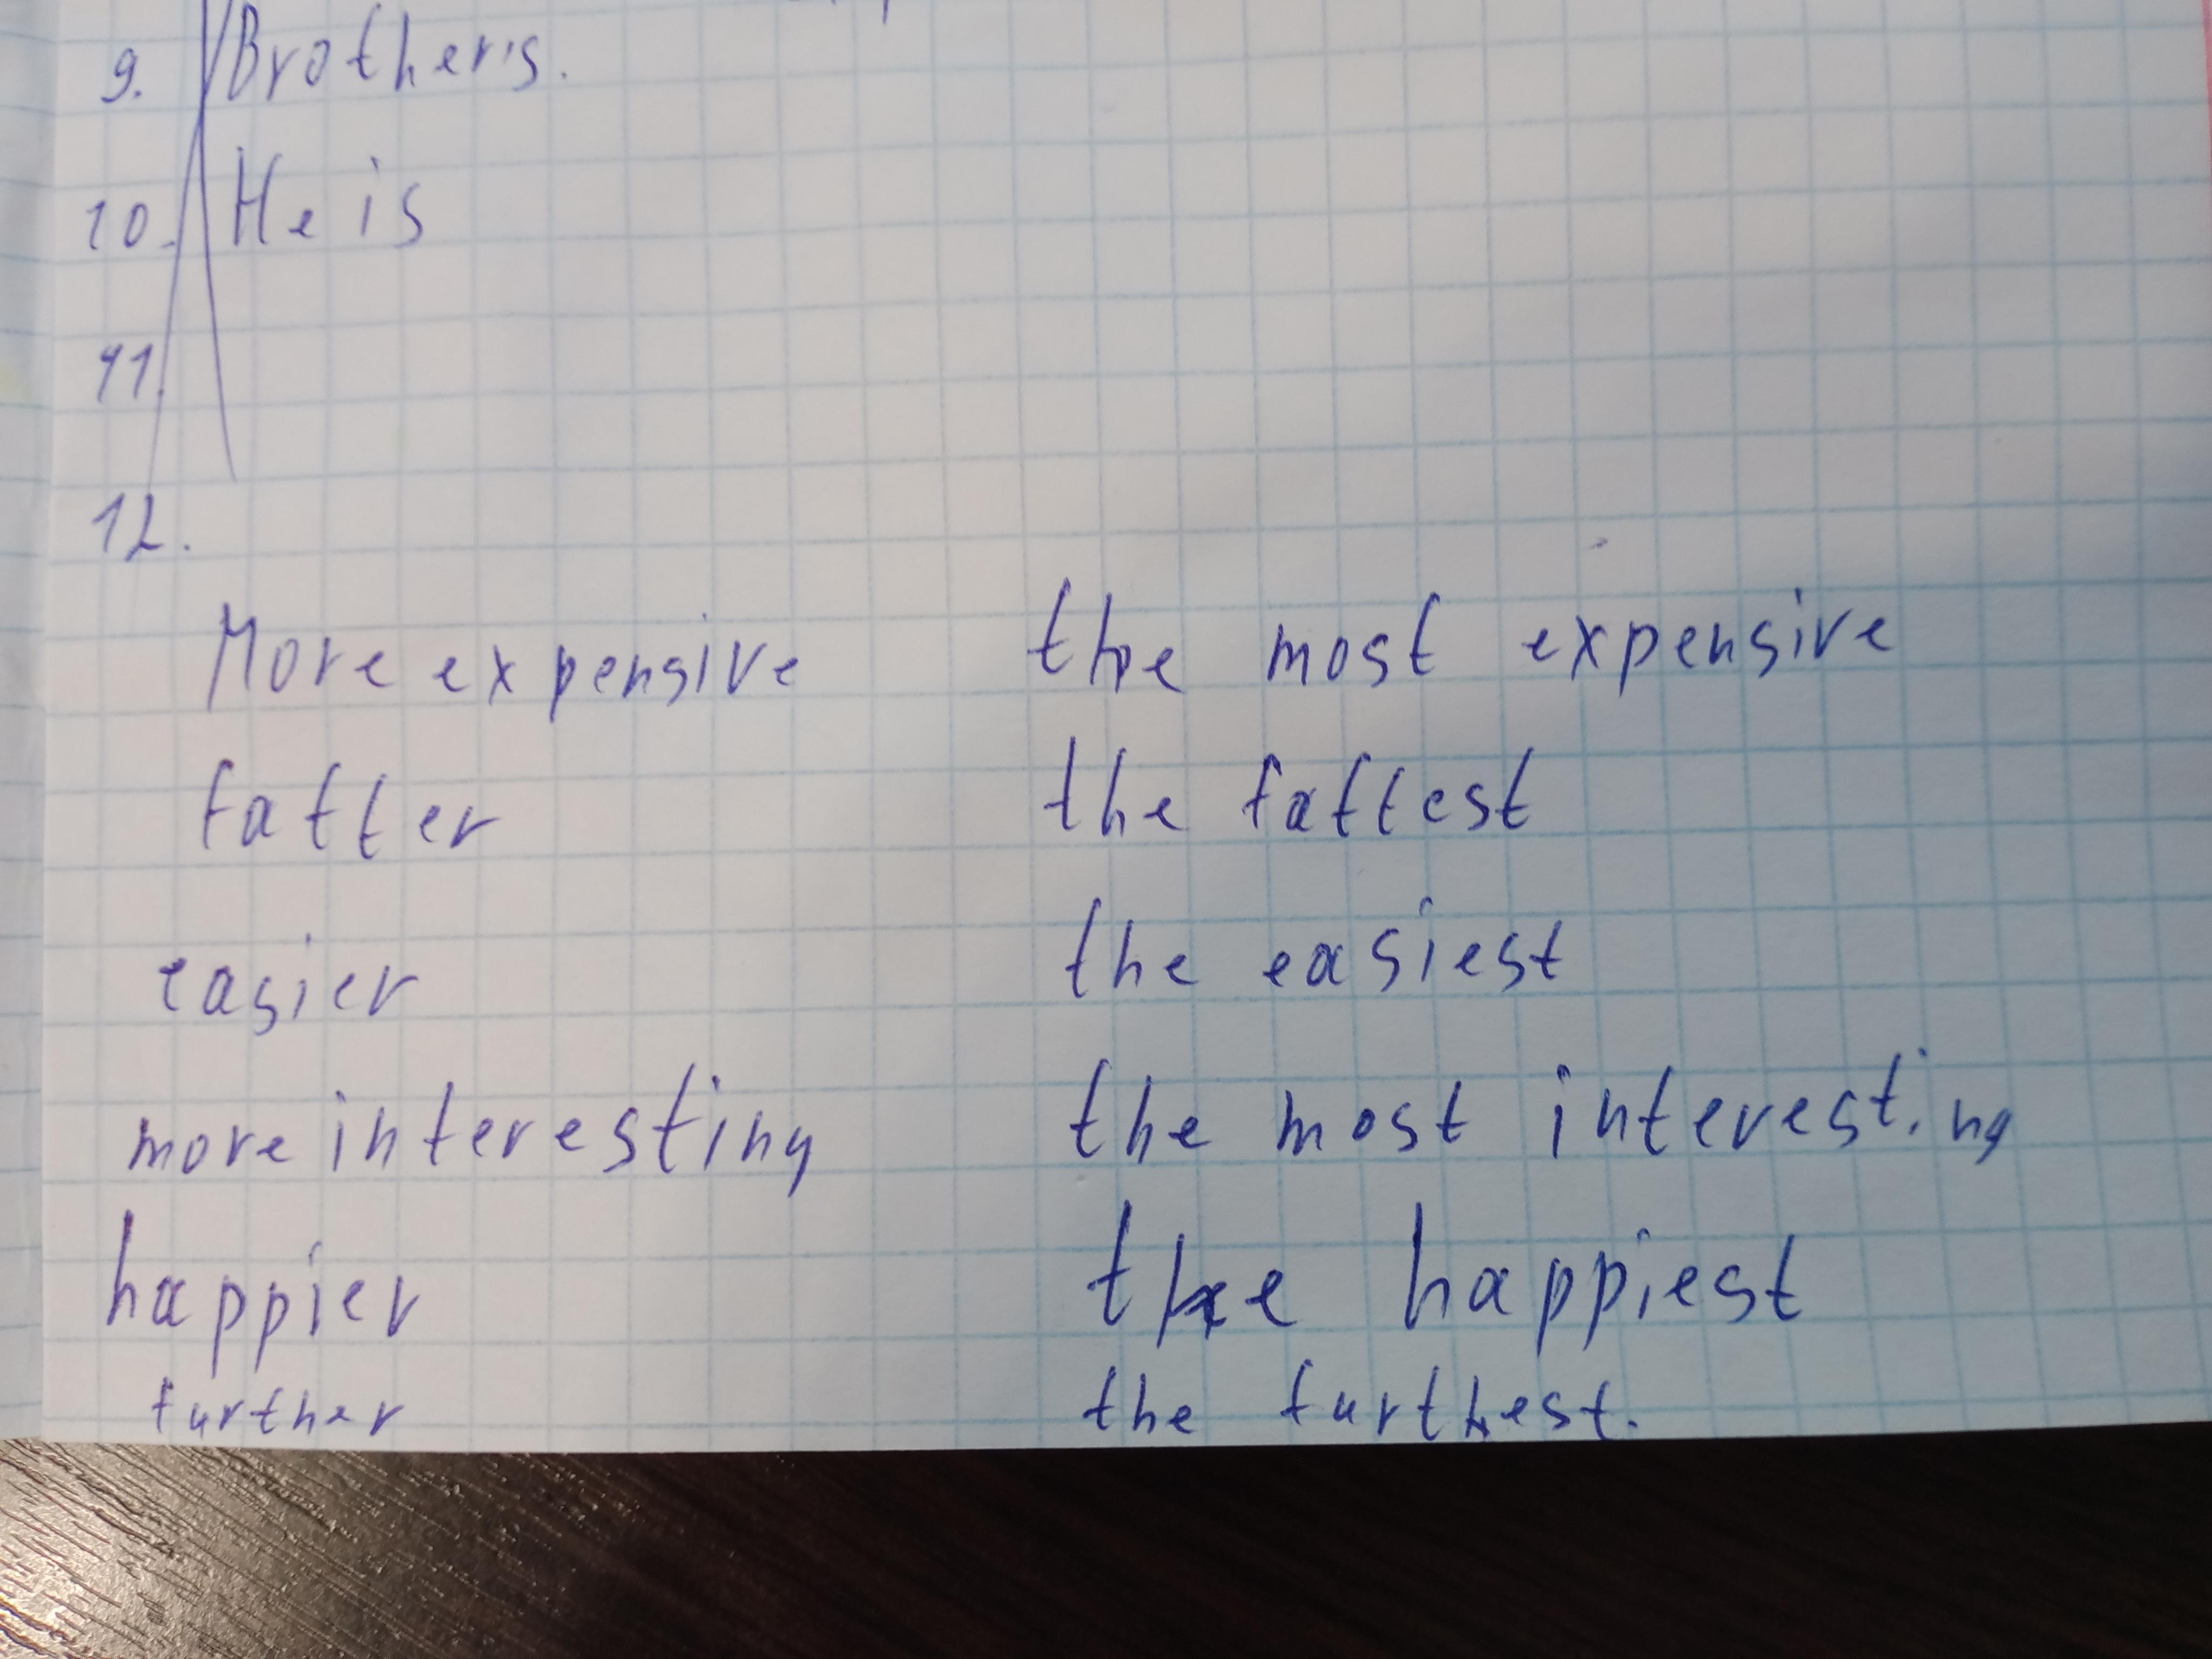 9. Brother's.
10. He is
11.
12.
More expensive the most expensive
fatter the fattest
easier the easiest
more interesting the most interesting
happier the happiest
further the furthest.